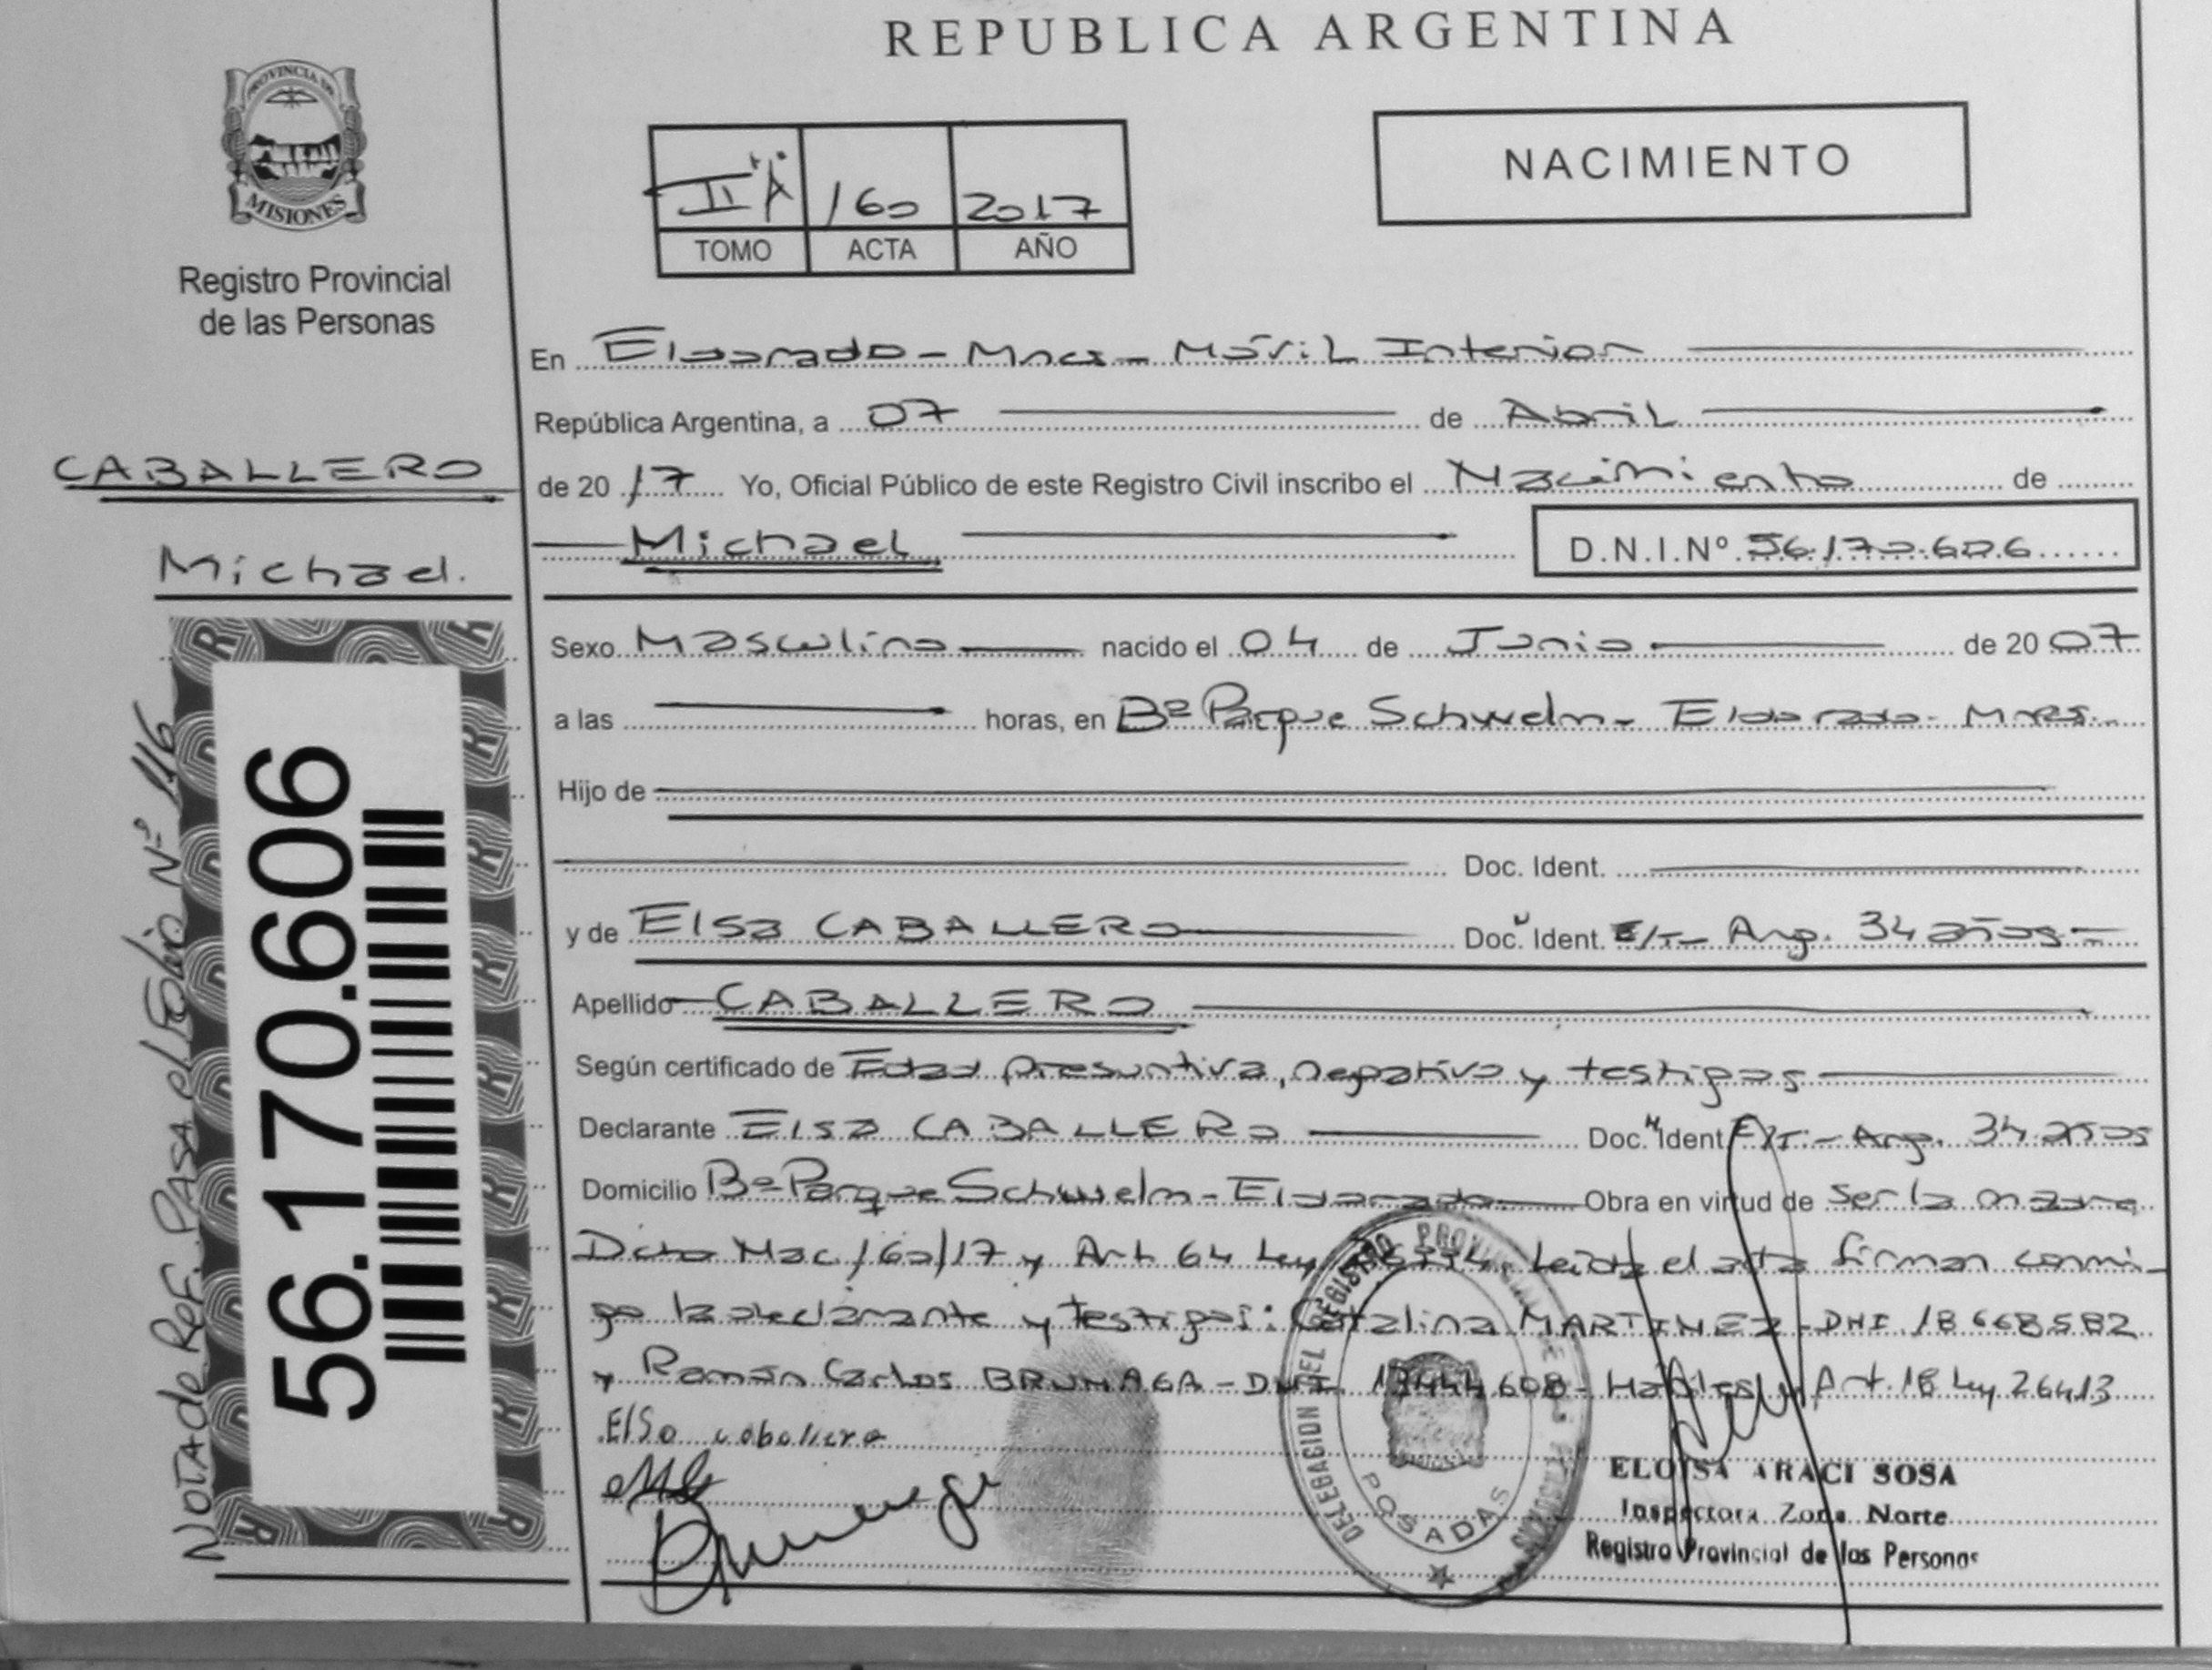 REPUBLICA ARGENTINA
PROVINCIA DE
MISIONES
Registro Provincial
de las Personas
CABALLERO
Michael.
NOTA de Ref. Pasa el Folio Nº 116
56.170.606
II "A" 160 2017
TOMO ACTA AÑO
NACIMIENTO
En Eldorado - Mnes - Móvil Interior
República Argentina, a 07 de Abril
de 20 17 Yo, Oficial Público de este Registro Civil inscribo el Nacimiento de
Michael D.N.I.Nº 56.170.606
Sexo Masculino nacido el 04 de Junio de 20 07
a las horas, en Bº Parque Schwelm - Eldorado - Mnes.
Hijo de
Doc. Ident.
y de Elsa CABALLERO Doc. Ident. E/T - Arg. 34 años -
Apellido CABALLERO
Según certificado de Edad presuntiva, negativo y testigos
Declarante Elsa CABALLERO Doc. Ident E/T - Arg. 34 años
Domicilio Bº Parque Schwelm - Eldorado Obra en virtud de ser la madre
Dcto Nac 160/17 y Art 64 Ley Leída el acta firman conmi-
go la declarante y testigos: Catalina MARTINEZ - DNI 18668582
y Ramón Carlos BRUNAGA - DNI 608 - Hábiles y Art. 18 Ley 26413
Elsa caballero
DELEGACION DEL REGISTRO PROVINCIAL DE LAS PERSONAS
POSADAS
ELOISA ARACI SOSA
Inspectora Zona Norte
Registro Provincial de las Personas